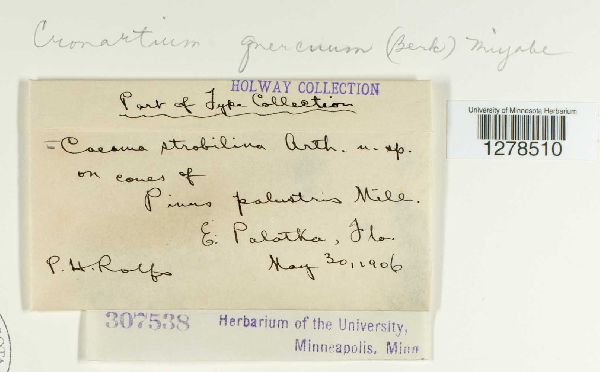 Cronartium quercuum (Berk) Miyabe
HOLWAY COLLECTION
Part of Type Collection
University of Minnesota Herbarium
1278510
=Caeoma strobilina Arth. n. sp.
on cones of
Pinus palustris Mill.
E. Palatka, Fla.
P. H. Rolfs
May 30, 1906
307538
Herbarium of the University,
Minneapolis, Minn
OTA